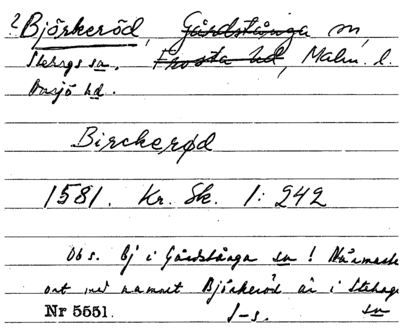 ? Björkeröd, Gårdstånga sn,
Stehags sn. Frosta hd, Malm. l.
Onsjö hd.
Birckerød
1581. Kr. Sk. 1: 242
Obs. Ej i Gårdstånga sn! Närmaste
ort med namnet Björkeröd är i Stehags
Nr 5551. J-s. sn